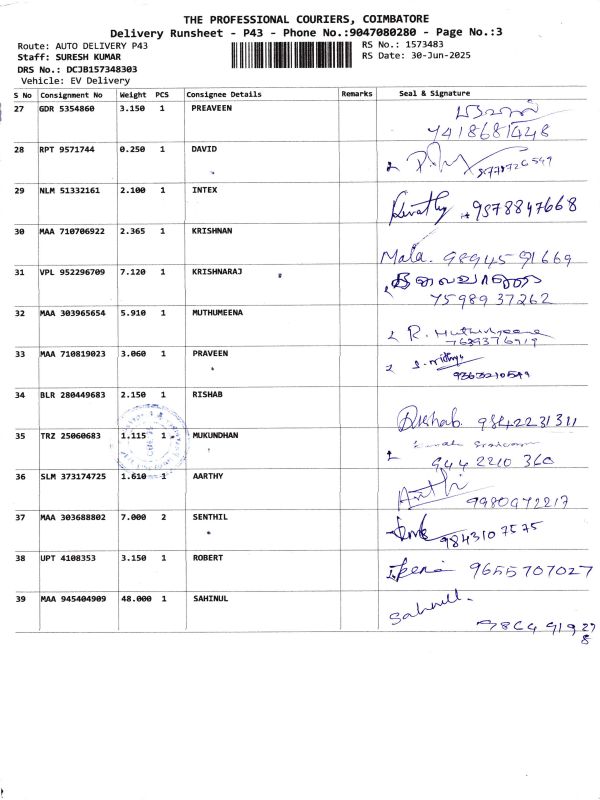 THE PROFESSIONAL COURIERS, COIMBATORE
Delivery Runsheet - P43 - Phone No.:9047080280 - Page No.:3
Route: AUTO DELIVERY P43
RS No.: 1573483
Staff: SURESH KUMAR
RS Date: 30-Jun-2025
DRS No.: DCJB157348303
Vehicle: EV Delivery
S No Consignment No Weight PCS Consignee Details Remarks Seal & Signature
27 GDR 5354860 3.150 1 PREAVEEN
7418681448
28 RPT 9571744 0.250 1 DAVID
29 NLM 51332161 2.100 1 INTEX
9578847668
30 MAA 710706922 2.365 1 KRISHNAN
Mala. 9894591669
31 VPL 952296709 7.120 1 KRISHNARAJ
7598937262
32 MAA 303965654 5.910 1 MUTHUMEENA
R. Muthumeena
7639376919
33 MAA 710819023 3.060 1 PRAVEEN
9363210549
34 BLR 280449683 2.150 1 RISHAB
Rishab. 9842231311
35 TRZ 25060683 1.115 1 MUKUNDHAN
9442210 360
36 SLM 373174725 1.610 1 AARTHY
9980472217
37 MAA 303688802 7.000 2 SENTHIL
9843107575
38 UPT 4108353 3.150 1 ROBERT
9655707027
39 MAA 945404909 48.000 1 SAHINUL
Sahinul.